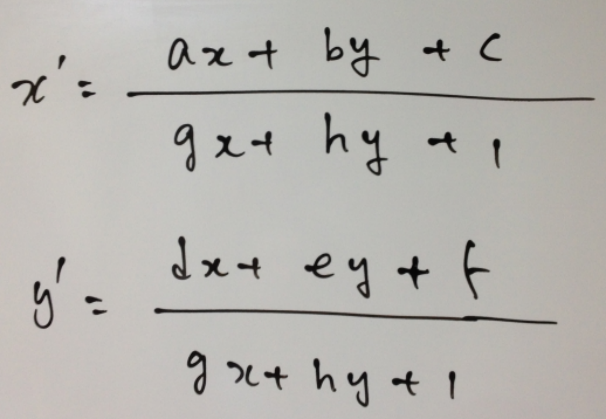 x' = ax + by + c
gx + hy + 1
y' = dx + ey + f
gx + hy + 1